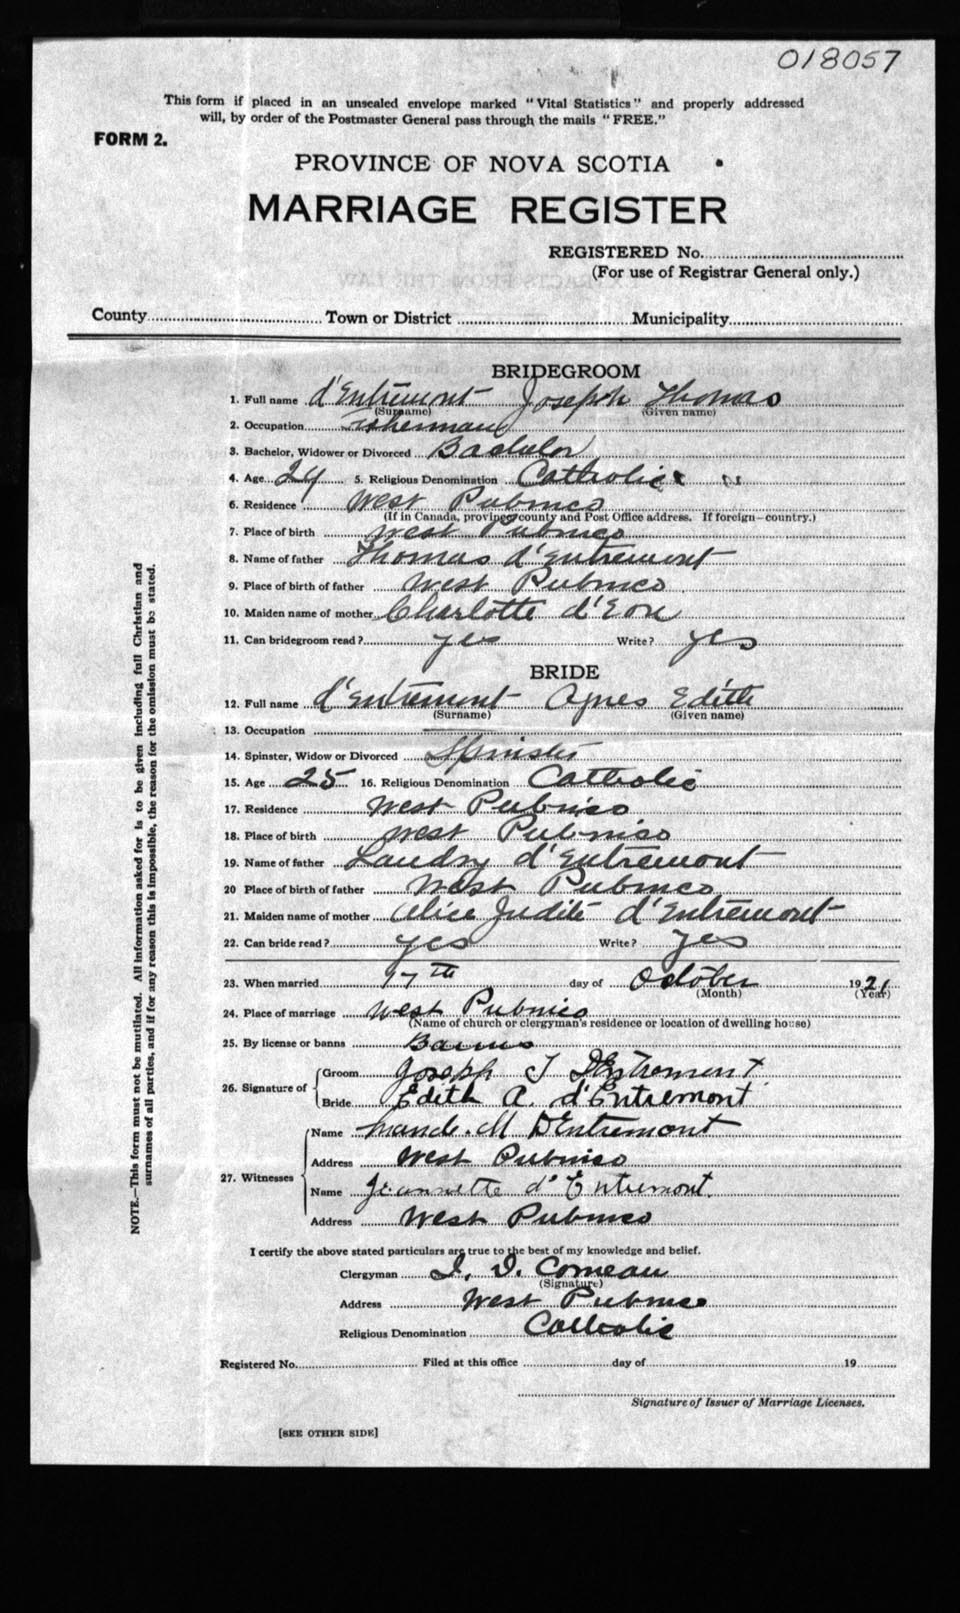 018057
This form if placed in an unsealed envelope marked "Vital Statistics" and properly addressed
will, by order of the Postmaster General pass through the mails "FREE."
FORM 2.
PROVINCE OF NOVA SCOTIA
MARRIAGE REGISTER
REGISTERED No.
(For use of Registrar General only.)
County Town or District Municipality
BRIDEGROOM
1. Full name d'Entremont Joseph Thomas
(Surname) (Given name)
2. Occupation Fisherman
3. Bachelor, Widower or Divorced Bachelor
4. Age 29 5. Religious Denomination Catholic
6. Residence West Pubnico
(If in Canada, province county and Post Office address. If foreign—country.)
7. Place of birth West Pubnico
8. Name of father Thomas d'Entremont
9. Place of birth of father West Pubnico
10. Maiden name of mother Charlotte d'Eon
11. Can bridegroom read? yes Write? yes
BRIDE
12. Full name d'Entremont Agnes Edith
(Surname) (Given name)
13. Occupation
14. Spinster, Widow or Divorced Spinster
15. Age 25 16. Religious Denomination Catholic
17. Residence West Pubnico
18. Place of birth West Pubnico
19. Name of father Landry d'Entremont
20 Place of birth of father West Pubnico
21. Maiden name of mother Alice Judite d'Entremont
22. Can bride read? yes Write? yes
23. When married 17th day of October 1921
(Month) (Year)
24. Place of marriage West Pubnico
(Name of church or clergyman's residence or location of dwelling house)
25. By license or banns Banns
26. Signature of Groom Joseph T DEntremont
Bride Edith A. d'Entremont
27. Witnesses Name M DEntremont
Address West Pubnico
Name Jeannette d'Entremont.
Address West Pubnico
I certify the above stated particulars are true to the best of my knowledge and belief.
Clergyman Comeau
(Signature)
Address West Pubnico
Religious Denomination Catholic
Registered No. Filed at this office day of 19
Signature of Issuer of Marriage Licenses.
[SEE OTHER SIDE]
NOTE.—This form must not be mutilated. All information asked for is to be given including full Christian and
surnames of all parties, and if for any reason this is impossible, the reason for the omission must be stated.